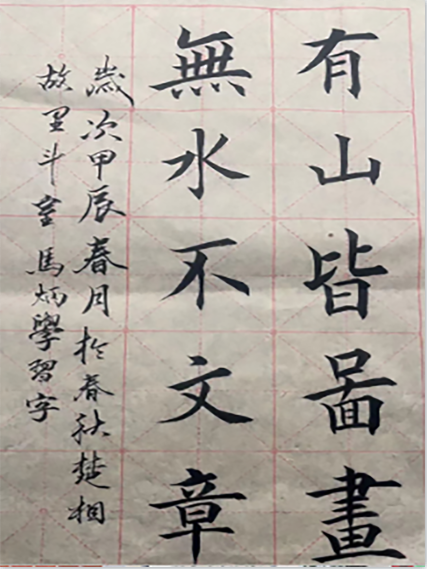 有山皆啚畫
無水不文章
歲次甲辰春月於春秋楚相
故里斗室馬炳學習字